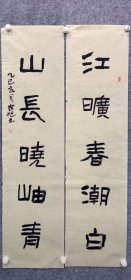 江曠春潮白
山長曉岫青